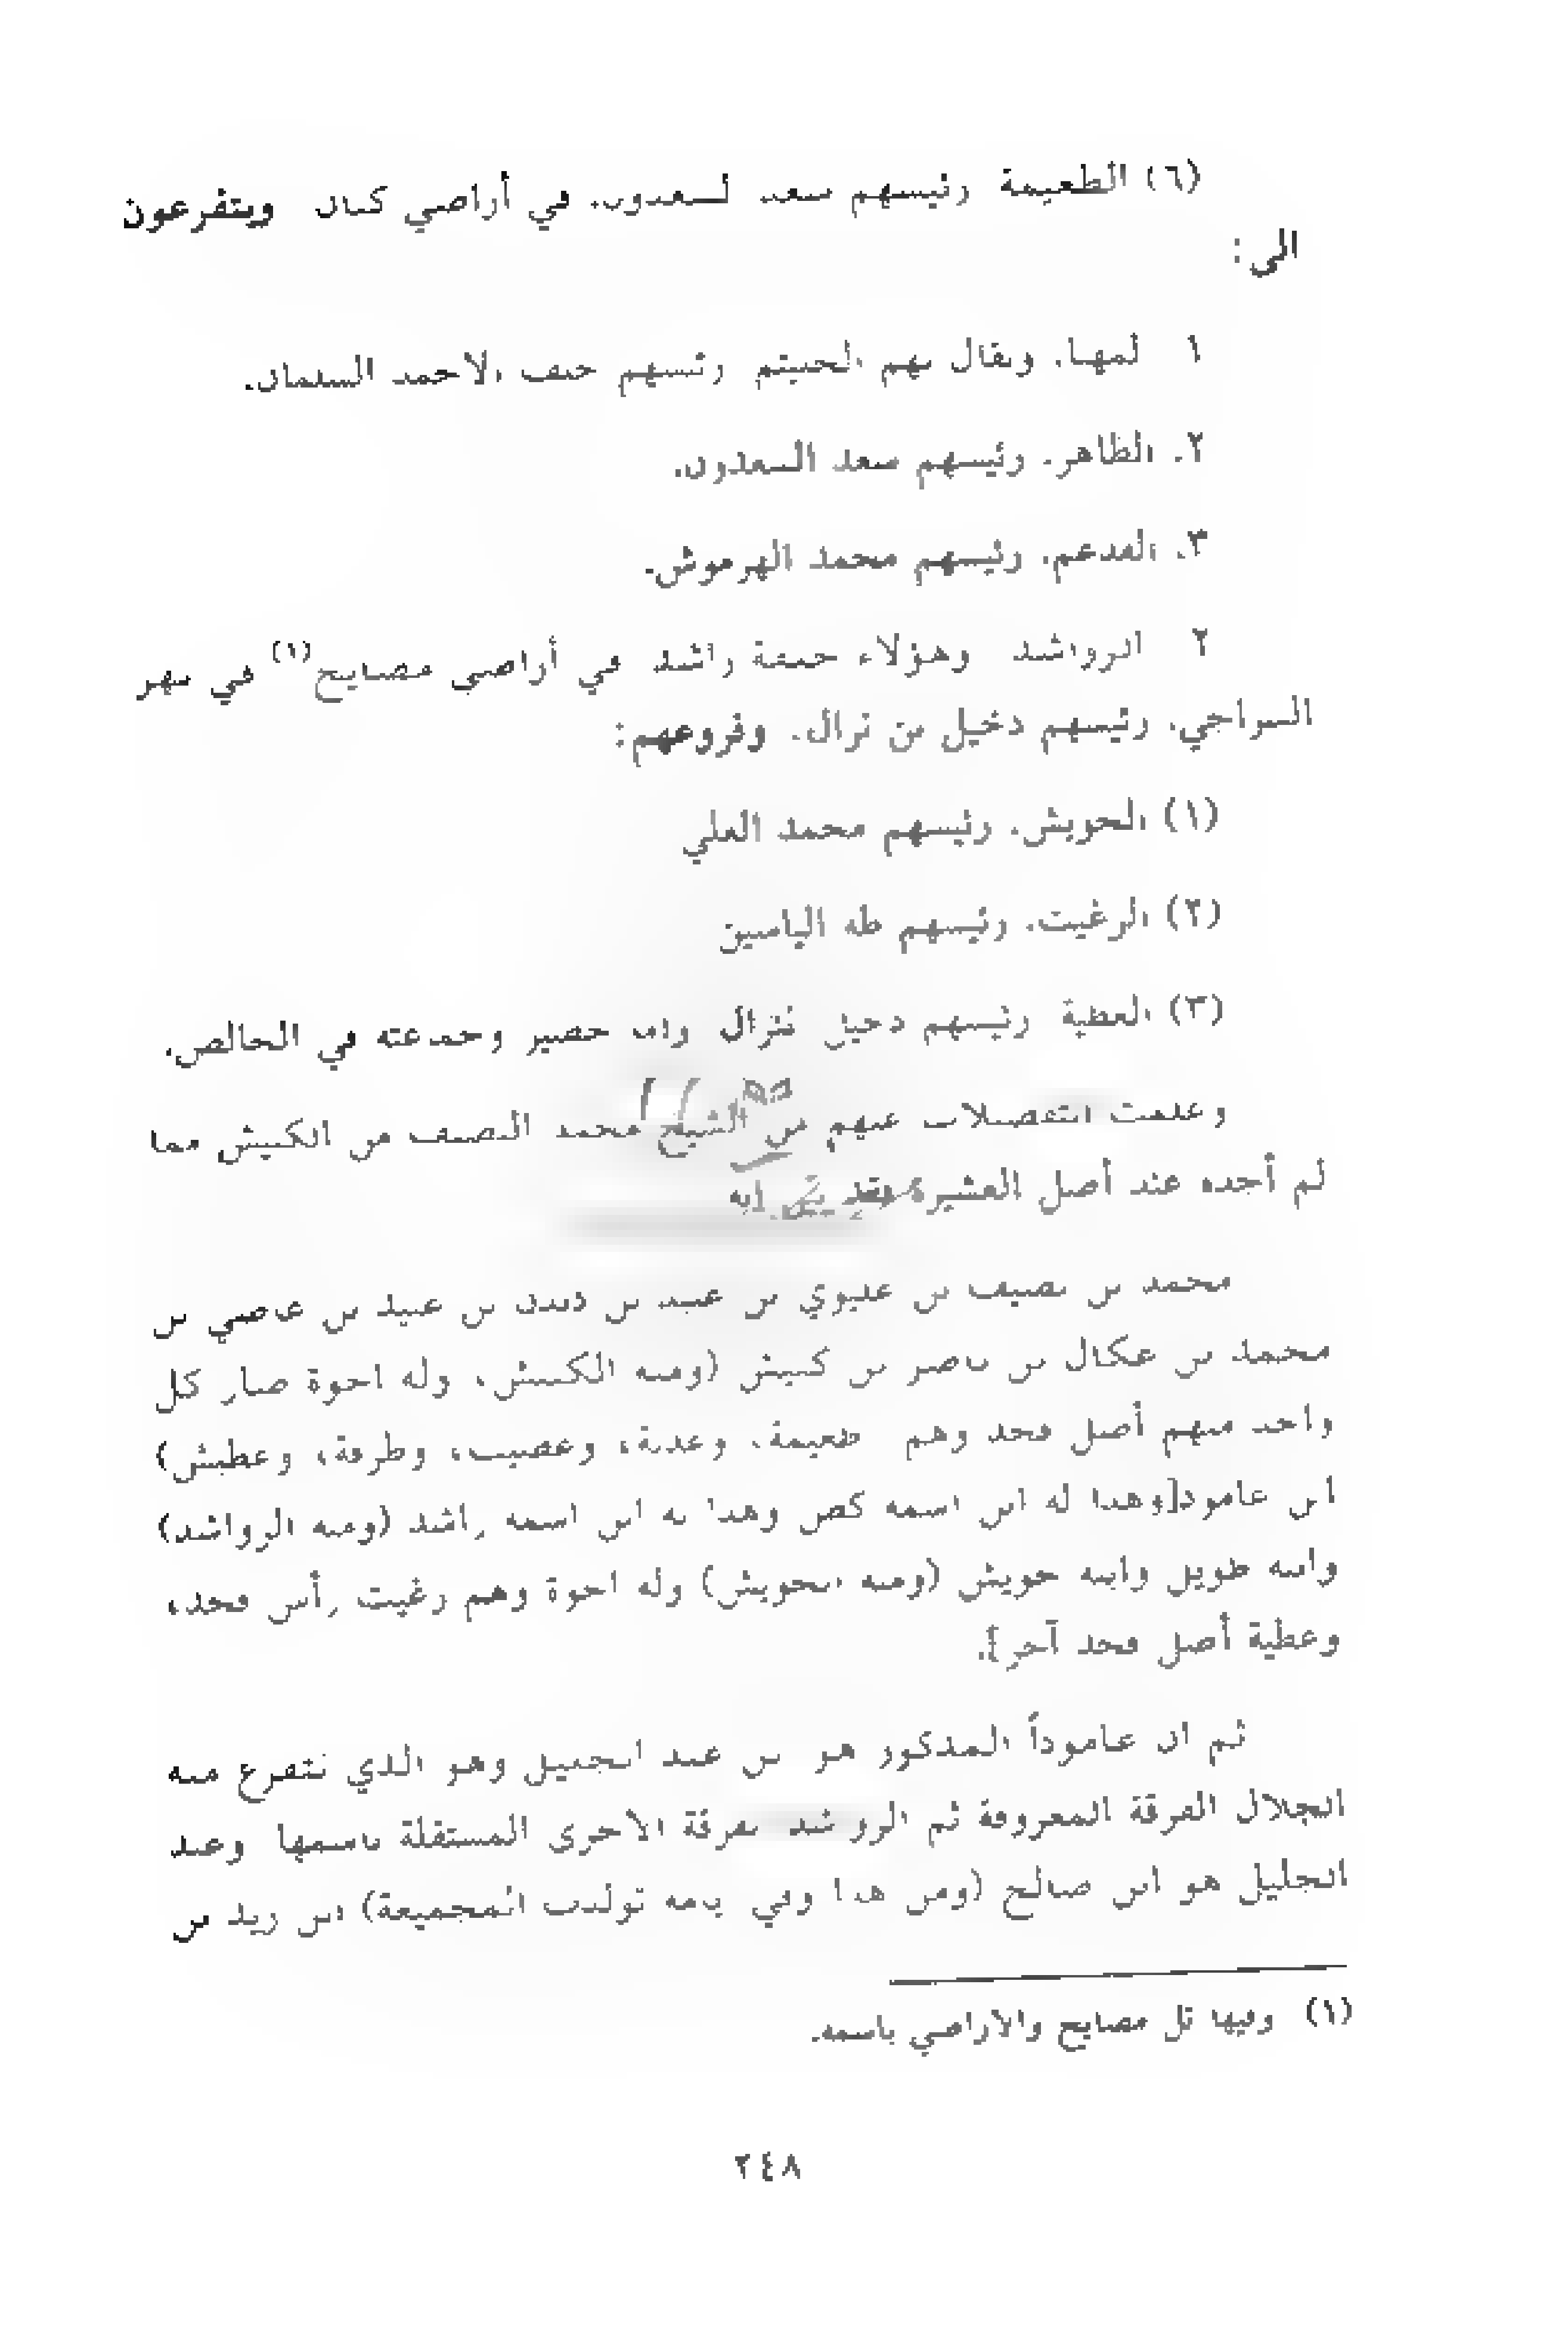 (٦) الطعيمة رئيسهم سعد السعدون. في أراضي كنعان ويتفرعون
الى:
١ المهنا. ويقال لهم الحسيم رئيسهم خلف الاحمد السلمان.
٢. الظاهر. رئيسهم سعد السعدون.
٣. الفدعم. رئيسهم محمد الهرموش.
٢ الرواشد وهؤلاء حمعة راشد في أراضي مصايح(١) في نهر
السراجي. رئيسهم دخيل بن نزال. وفروعهم:
(١) الحويش. رئيسهم محمد العلي
(٢) الرغيت. رئيسهم طه الياسين
(٣) العطية رئيسهم دخيل نزال وابن خضير وجماعته في الخالص.
وعلمت التفصيلات عنهم من الشيخ محمد النصيف من الكبيش مما
لم أجده عند أصل العشيرة فقد بين انه
محمد بن نصيف بن عليوي بن عبد بن بن عبيد بن عاصي بن
محمد بن عكال بن ناصر بن كبيش (ومنه الكبيش، وله اخوة صار كل
واحد منهم أصل فخذ وهم طعيمة، وعدبة، وغصيب، وطرفة، وعطيش)
ابن عامود[وهذا له ابن اسمه كص وهذا له ابن اسمه راشد (ومنه الرواشد)
وابنه طويل وابنه حويش (ومنه الحويش) وله اخوة وهم رغيت رأس فخذ،
وعطية أصل فخذ آخر].
ثم ان عاموداً المذكور هو بن عبد الجليل وهو الذي تتفرع منه
الجلال الفرقة المعروفة ثم الرواشد الفرقة الاخرى المستقلة باسمها وعبد
الجليل هو ابن صالح (ومن هذا وفي ايامه تولدت المجميعة) ابن زيد بن
(١) وفيها تل مصايح والاراضي باسمه.
٢٤٨